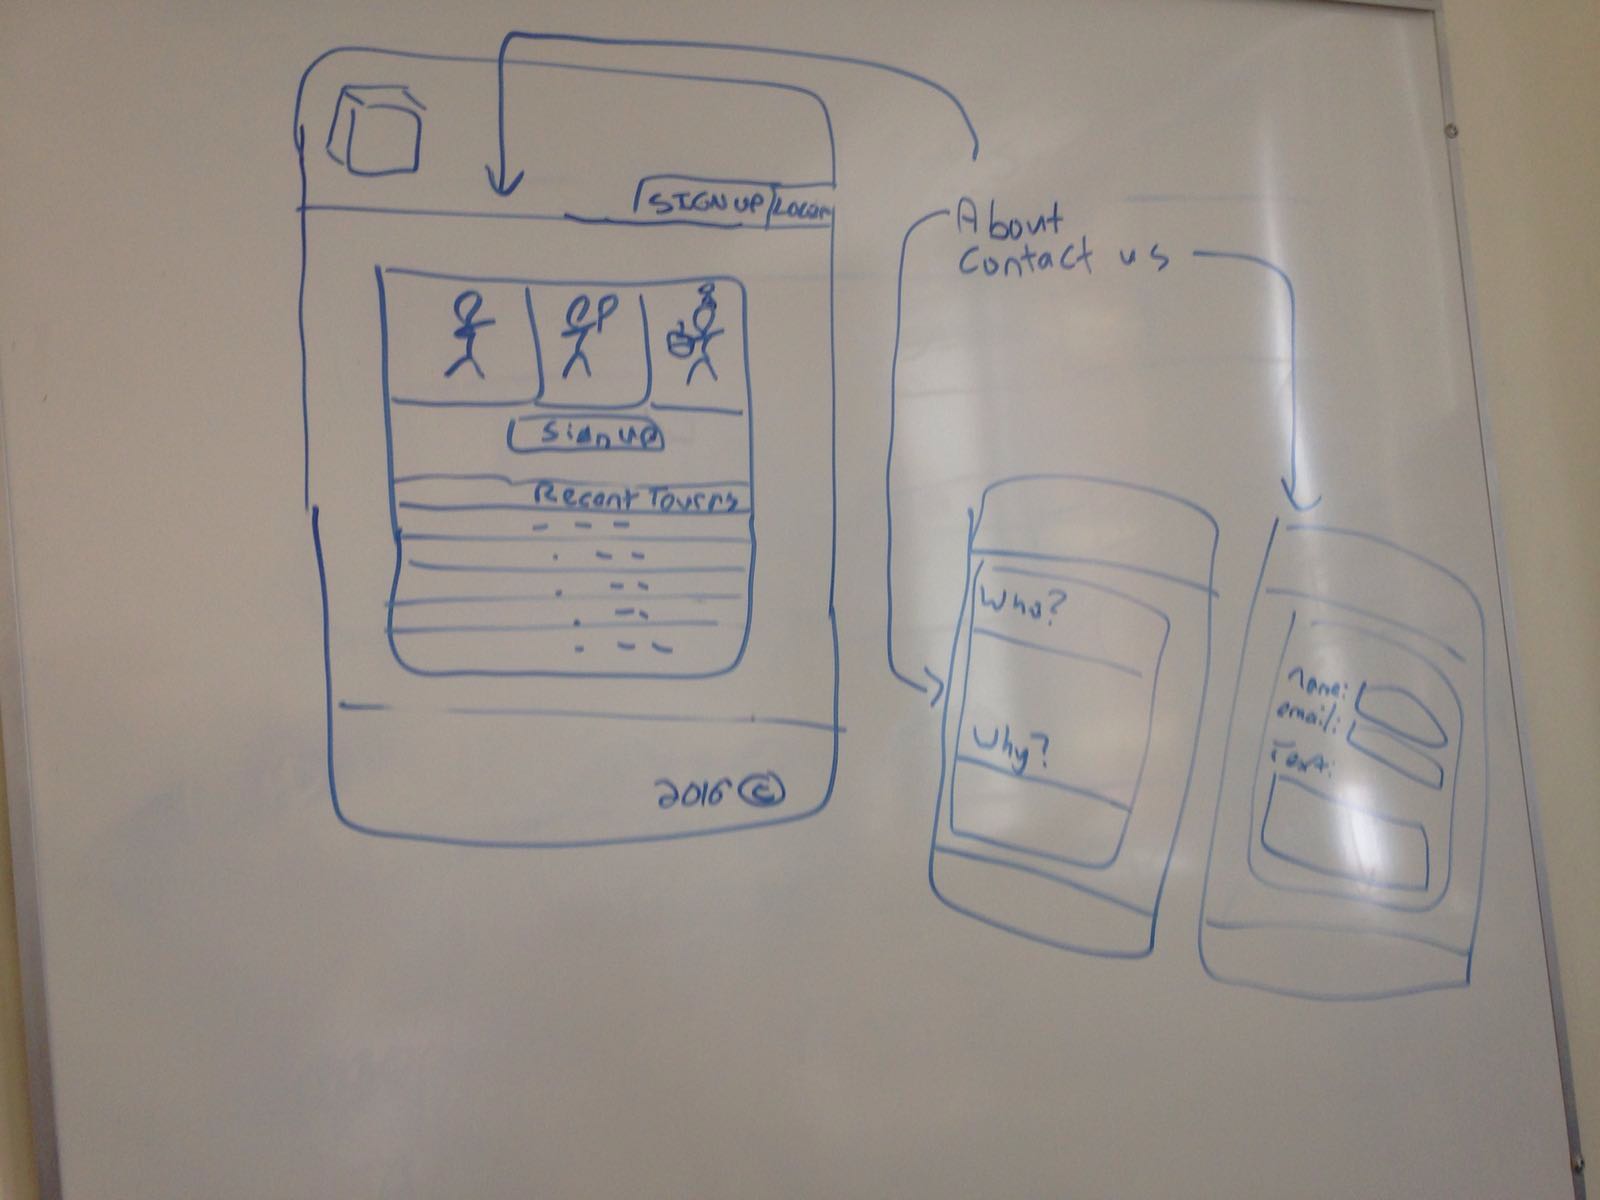 SIGNUP Login
Sign up
Recent Tours
2016 ©
About
Contact us
Who?
Why?
name:
email:
Text: